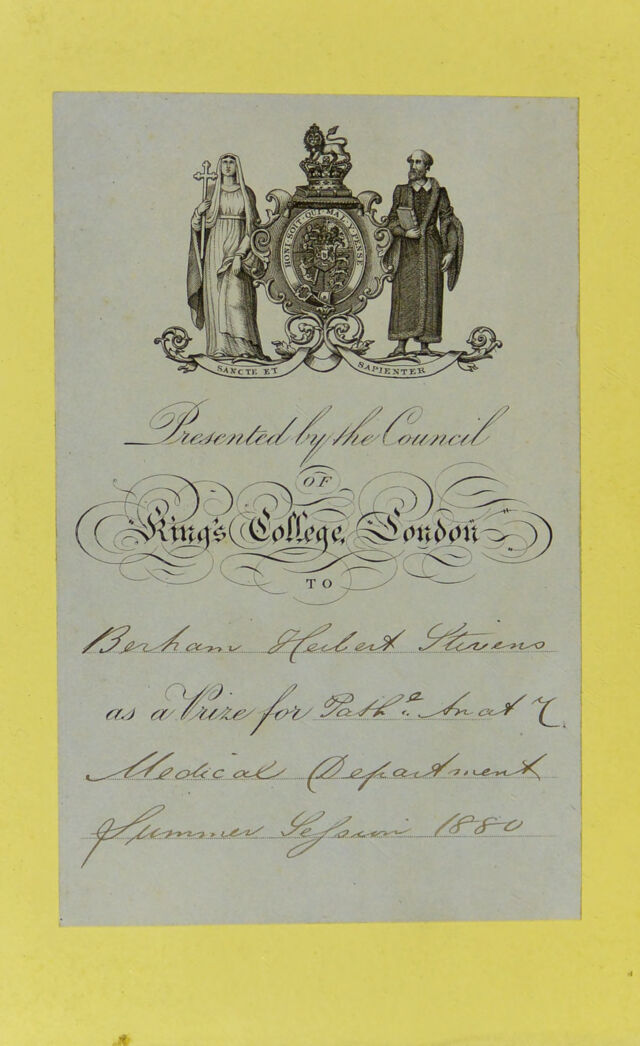 HONI·SOIT·QUI·MAL·Y·PENSE
SANCTE ET SAPIENTER
Presented by the Council
OF
King's College, London
TO
Herbert Stevens
as a Prize for Path. Anat
Medical Department
Summer Session 1880